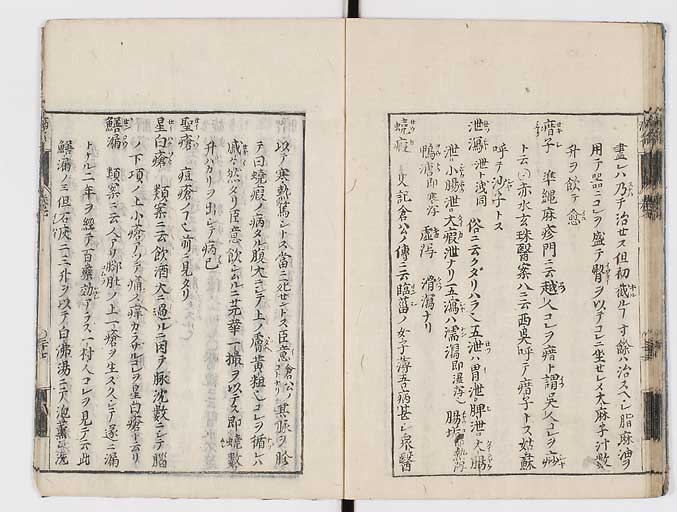 盡レハ乃チ治セス但初截ルヿ寸餘ハ治スヘシ脂麻油ヲ
用テ器ニコレヲ盛テ臀ヲ以テコレニ坐セシメ大麻子汁數
升ヲ飲テ愈
瘖子 準繩麻疹門ニ云越人コレヲ瘖ト謂吳人コレヲ痧
ト云 赤水玄珠醫案八ニ云西吳呼テ瘄子トス姑蘇
呼テ沙子トス
泄瀉 泄ト浅同 俗ニ云クダリハラ 五泄ハ胃泄脾泄大腸
泄小腸泄大瘕泄ナリ 五瀉ハ濡瀉即湿瀉 腸垢即熱瀉
鴨溏即寒瀉 虚瀉 滑瀉ナリ
蟯瘕 史記倉公ノ傳ニ云臨菑ノ女子薄吾病甚シ衆醫
以テ寒熱篤シトス當ニ死セントス臣意倉公ノ其脉ヲ胗
テ曰蟯瘕ノ病タル腹大ニシテ上ノ膚黄粗シコレヲ循レハ
戚々然タリ臣意飲シムルニ芫華一撮ヲ以テス即蟯數
升ハカリヲ出シテ病已
聖瘡 痘瘡ノヿ前ニ見タリ
星白瘡 類案ニ云飲酒大ニ過ルニ因テ脉沈數ニシテ腦
ノ下項ノ上小瘡アツテ痛ス癢カラズコレヲ星白瘡ト云リ
鱔漏 類案ニ云人アリ脚肚ノ上一瘡ヲ生ス久シテ遂ニ漏
トナル二年ヲ經テ百藥効アラス一村人コレヲ見テ云此
鱔漏ノミ但石灰二三升ヲ以テ白沸湯ニテ泡薫洗